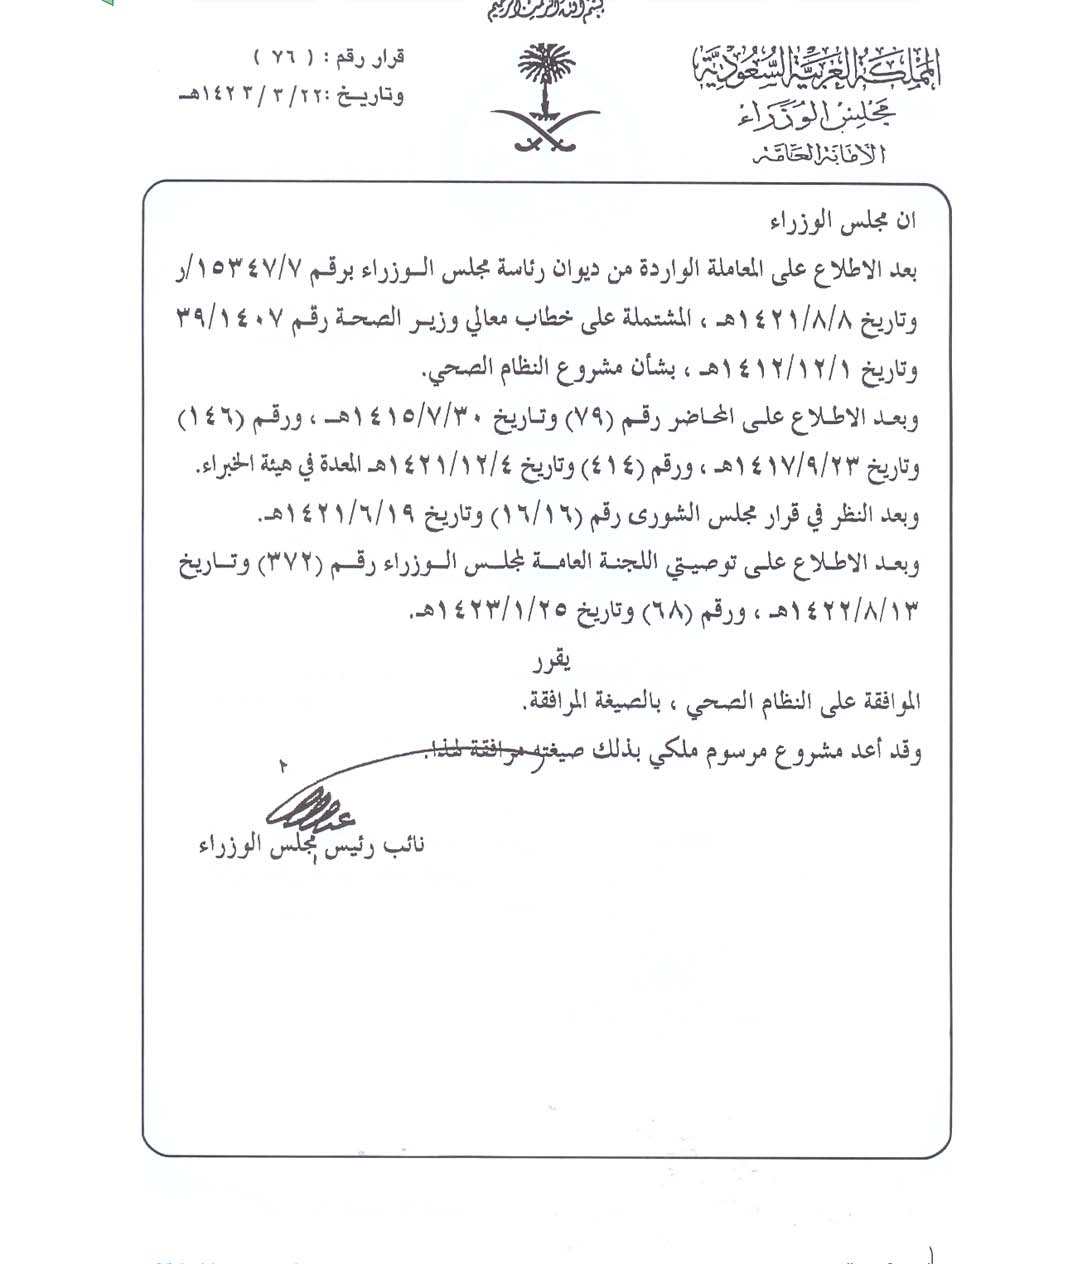 بسم الله الرحمن الرحيم
المملكة العربية السعودية
مجلس الوزراء
الأمانة العامة
قرار رقم : ( ٧٦ )
وتاريخ :١٤٢٣/٣/٢٢هـ
ان مجلس الوزراء
بعد الاطلاع على المعاملة الواردة من ديوان رئاسة مجلس الوزراء برقم ١٥٣٤٧/٧/ر
وتاريخ ١٤٢١/٨/٨هـ ، المشتملة على خطاب معالي وزير الصحة رقم ٣٩/١٤٠٧
وتاريخ ١٤١٢/١٢/١هـ ، بشأن مشروع النظام الصحي.
وبعد الاطلاع على المحاضر رقم (٧٩) وتاريخ ١٤١٥/٧/٣٠هـ ، ورقم (١٤٦)
وتاريخ ١٤١٧/٩/٢٣هـ ، ورقم (٤١٤) وتاريخ ١٤٢١/١٢/٤هـ المعدة في هيئة الخبراء.
وبعد النظر في قرار مجلس الشورى رقم (١٦/١٦) وتاريخ ١٤٢١/٦/١٩هـ.
وبعد الاطلاع على توصيتي اللجنة العامة لمجلس الوزراء رقم (٣٧٢) وتاريخ
١٤٢٢/٨/١٣هـ ، ورقم (٦٨) وتاريخ ١٤٢٣/١/٢٥هـ.
يقرر
الموافقة على النظام الصحي ، بالصيغة المرافقة.
وقد أعد مشروع مرسوم ملكي بذلك صيغته مرافقة لهذا.
نائب رئيس مجلس الوزراء